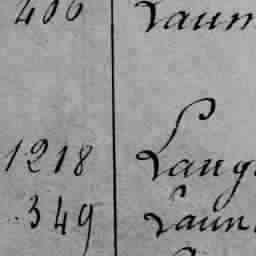 406 Laun
1218 Laug
349 Laun